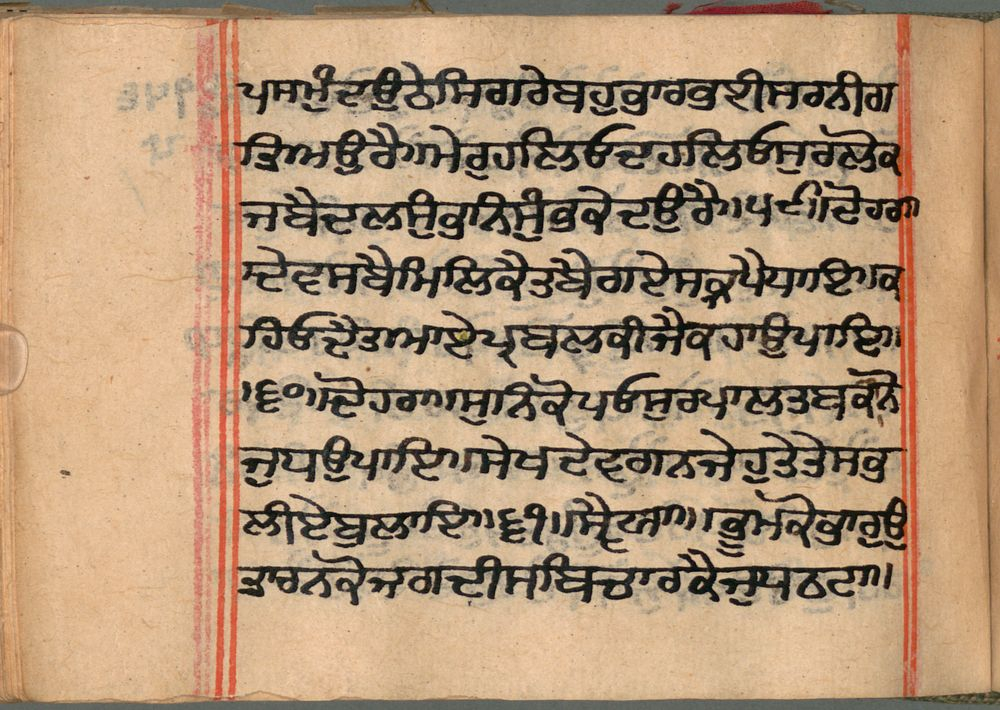 ਪਸਮੁੰਦਉਠੇਸਿਗਰੇਬਹੁਭਾਰਭਈਸਰਨੀਗ
ਤਿਅਉਰੈ॥ਮੇਰੁਹਲਿਓਦਹਲਿਓਸੁਰਲੋਕ
ਜਬੈਦਲਸੁੰਭਨਿਸੁੰਭਕੇਦਉਰੈ॥੫੯॥ਦੋਹਰਾ
॥ਦੇਵਸਬੈਮਿਲਿਕੈਤਬੈਗਏਸਕ੍ਰਪੈਧਾਇ॥ਕ
ਹਿਓਦੈਤਆਏਪ੍ਰਬਲਕੀਜੈਕਹਾਉਪਾਇ॥
॥੬੦॥ਦੋਹਰਾ॥ਸੁਨਿਕੋਪਓਸੁਰਪਾਲਤਬਕੀਨੋ
ਜੁਧਉਪਾਇ॥ਸੇਖਦੇਵਗਨਜੇਹੁਤੇਤੇਸਭ
ਲੀਏਬੁਲਾਇ॥੬੧॥ਸ੍ਵੈਯਾ॥ਭੂਮਕੋਭਾਰੁਉ
ਤਾਰਨਕੋਜਗਦੀਸਬਿਚਾਰਕੈਜੁਧਠਟਾ॥